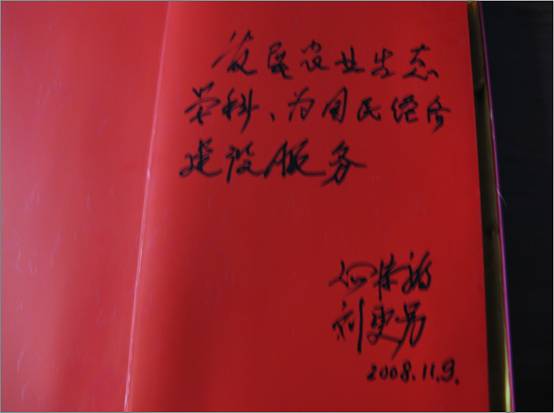 发展农业生态
学科、为国民经济
建设服务
刘更另
2008.11.9.